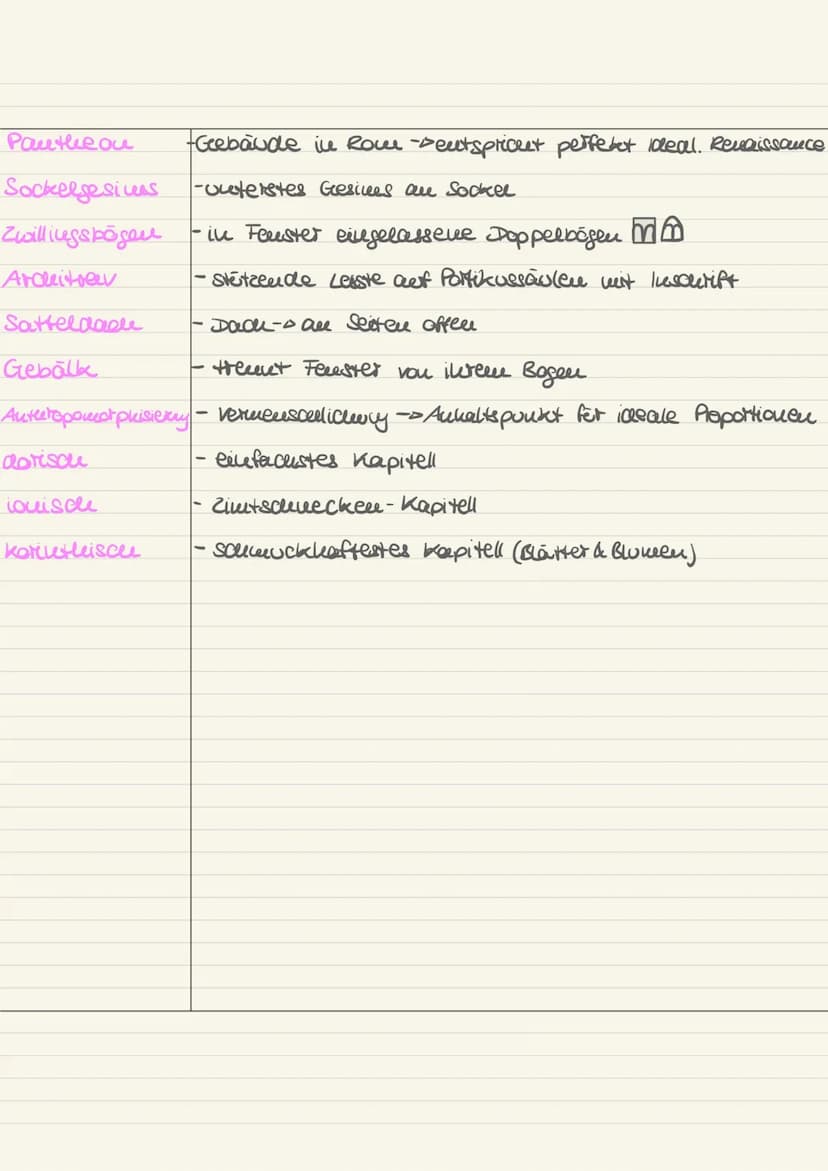 Pantheon -Gebäude in Rom -> entspricht perfekt ideal. Renaissance
Sockelgesims -unterstes Gesims am Sockel
Zwillingsbögen - in Fenster eingelassene Doppelbögen
Architrav - stützende Leiste auf Portikussäulen mit Inschrift
Satteldach - Dach -> an Seiten offen
Gebälk - trennt Fenster von ihrem Bogen
Anthropomorphisierung - Vermenschlichung -> Anhaltspunkt für ideale Proportionen
dorisch - einfachstes Kapitell
ionisch - Zimtschnecken-Kapitell
korinthisch - schmuckhaftestes Kapitell (Blätter & Blumen)